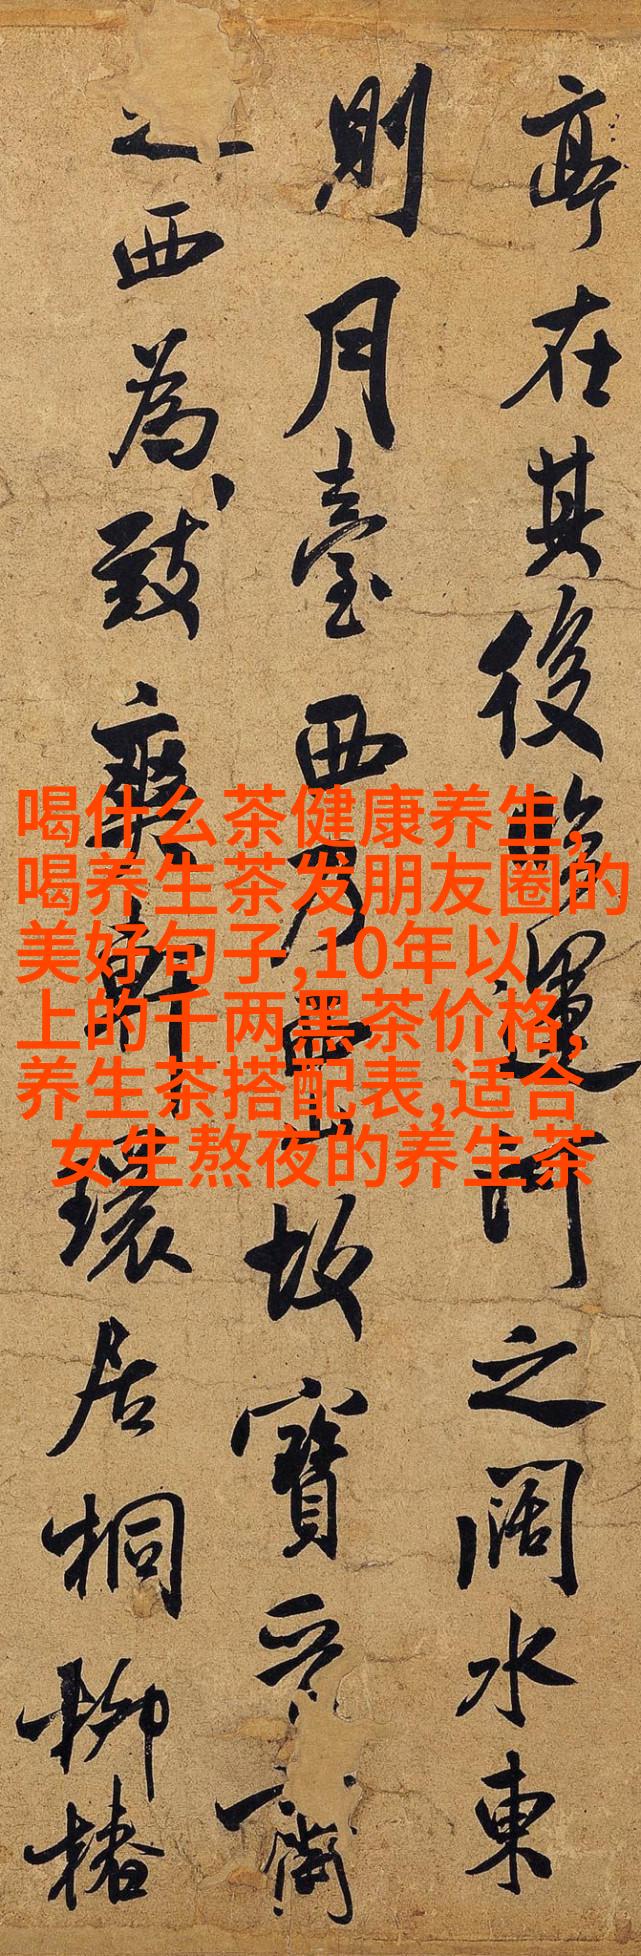 亭在其後臨運河之闊水東
則月臺西乃西山故寶晉齋
之西為致爽軒環居桐柳椿
喝什么茶健康养生,
喝养生茶发朋友圈的
美好句子,10年以
上的千两黑茶价格,
养生茶搭配表,适合
女生熬夜的养生茶